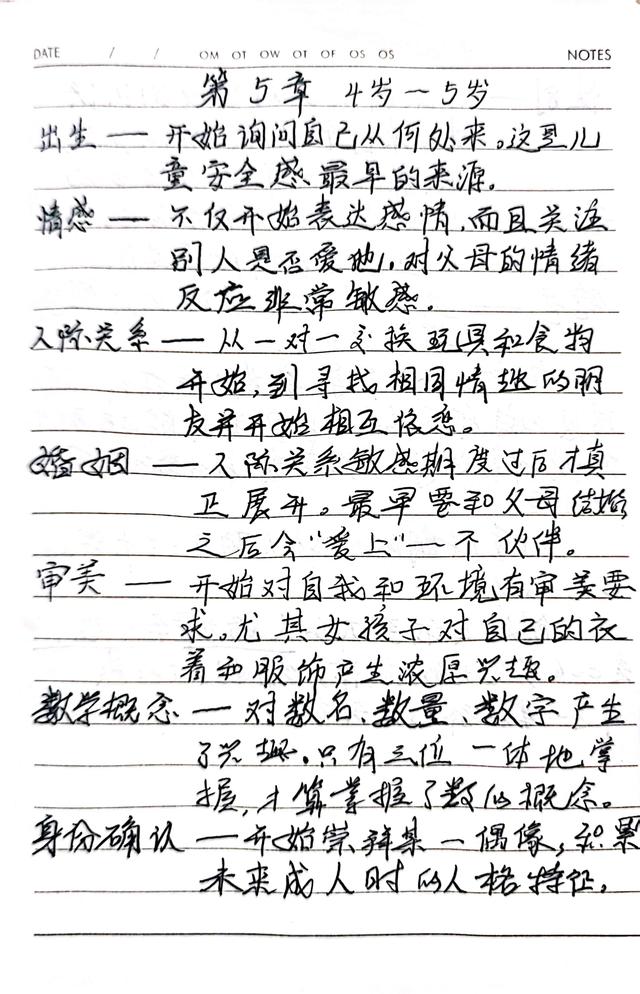 DATE / / OM OT OW OT OF OS OS NOTES
第5章 4岁~5岁
出生 — 开始询问自己从何处来。这是儿
童安全感最早的来源。
情感 — 不仅开始表达感情,而且关注
别人是否爱他,对父母的情绪
反应非常敏感。
人际关系 — 从一对一交换玩具和食物
开始,到寻找相同情趣的朋
友并开始相互依恋。
婚姻 — 人际关系敏感期度过后才真
正展开。最早要和父母结婚
之后会“爱上”一个伙伴。
审美 — 开始对自我和环境有审美要
求。尤其女孩子对自己的衣
着和服饰产生浓厚兴趣。
数学概念 — 对数名、数量、数字产生
了兴趣。只有三位一体地掌
握,才算掌握了数的概念。
身份确认 — 开始崇拜某一偶像,积累
未来成人时的人格特征,